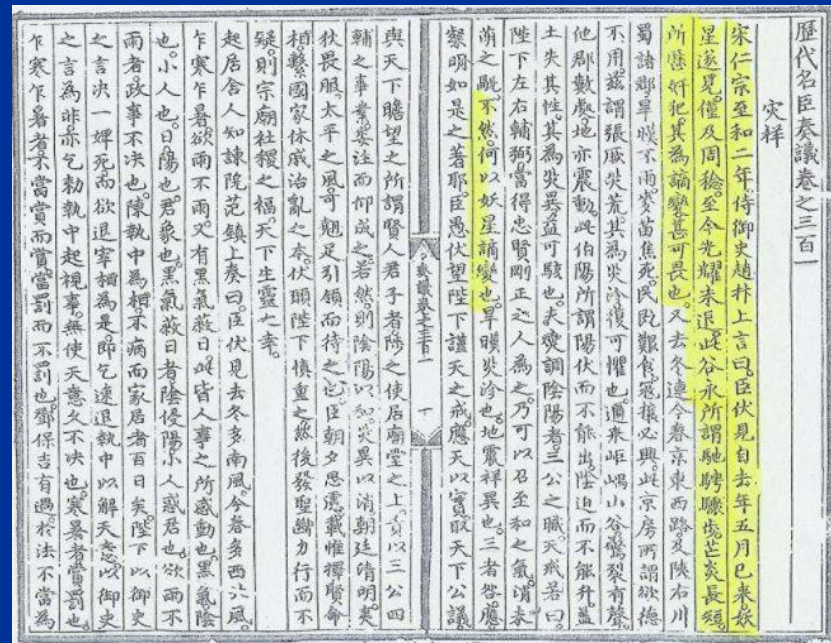 歷代名臣奏議卷之三百一
灾祥
宋仁宗至和二年侍御史趙抃上言曰臣伏見自去年五月已來妖
星遂見僅及周稔至今光耀未退此谷永所謂馳騁驟步芒炎長短
所歷奸犯其為謫變甚可畏也又去冬連今春京東西路及陝右川
蜀諸郡旱暵不雨麥苗焦死民既艱食寇攘必興此京房所謂欲德
不用茲謂張厥災荒其為災沴復可懼也邇來岠嵎山谷驚裂有聲
他郡數處地亦震動此伯陽所謂陽伏而不能出陰迫而不能升蓋
土失其性其為災異益可駭也夫燮調陰陽者三公之職天戒若曰
陛下左右輔弼當得忠賢剛正之人為之乃可以召至和之氣消未
萌之眚不然何以妖星謫變也旱暵災沴也地震祥異也三者咎應
察明如是之著耶臣愚伏望陛下謹天之戒應天以實取天下公議
奏議卷之三百一
與天下瞻望之所謂賢人君子者陟之使居廟堂之上責以三公四
輔之事業委注而仰成之若然則陰陽以和災異以消朝廷清明夷
狄畏服太平之風可翹足引領而待之也臣朝夕思慮載惟擇賢命
相繫國家休戚治亂之本伏願陛下慎重之然後發聖斷力行而不
疑則宗廟社稷之福天下生靈之幸
起居舍人知諫院范鎮上奏曰臣伏見去冬多南風今春多西北風
乍寒乍暑欲雨不雨又有黑氣蔽日此皆人事之所感動也黑氣陰
也小人也日陽也君象也黑氣蔽日者陰侵陽小人惑君也欲雨不
雨者政事不決也陳執中為相不病而家居者百日矣陛下以御史
之言決一婢死而欲退宰相為是即乞速退執中以解天意以御史
之言為非亦乞勑執中起視事無使天意久不決也寒暑者賞罰也
乍寒乍暑者不當賞而賞當罰而不罰也鄧保吉有過於法不當為